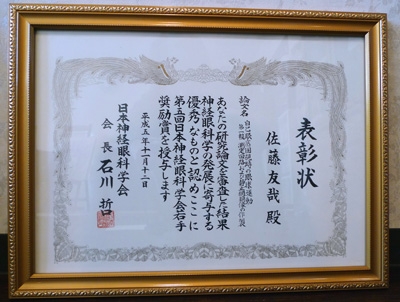 表彰状
佐藤友哉殿
論文名
あなたの研究論文を審査した結果
神経眼科学の発展に寄与する
優秀なものと認めここに
第五回日本神経眼科学会若手
奨励賞を授与します
平成五年十一月十二日
日本神経眼科学会
会長 石川哲